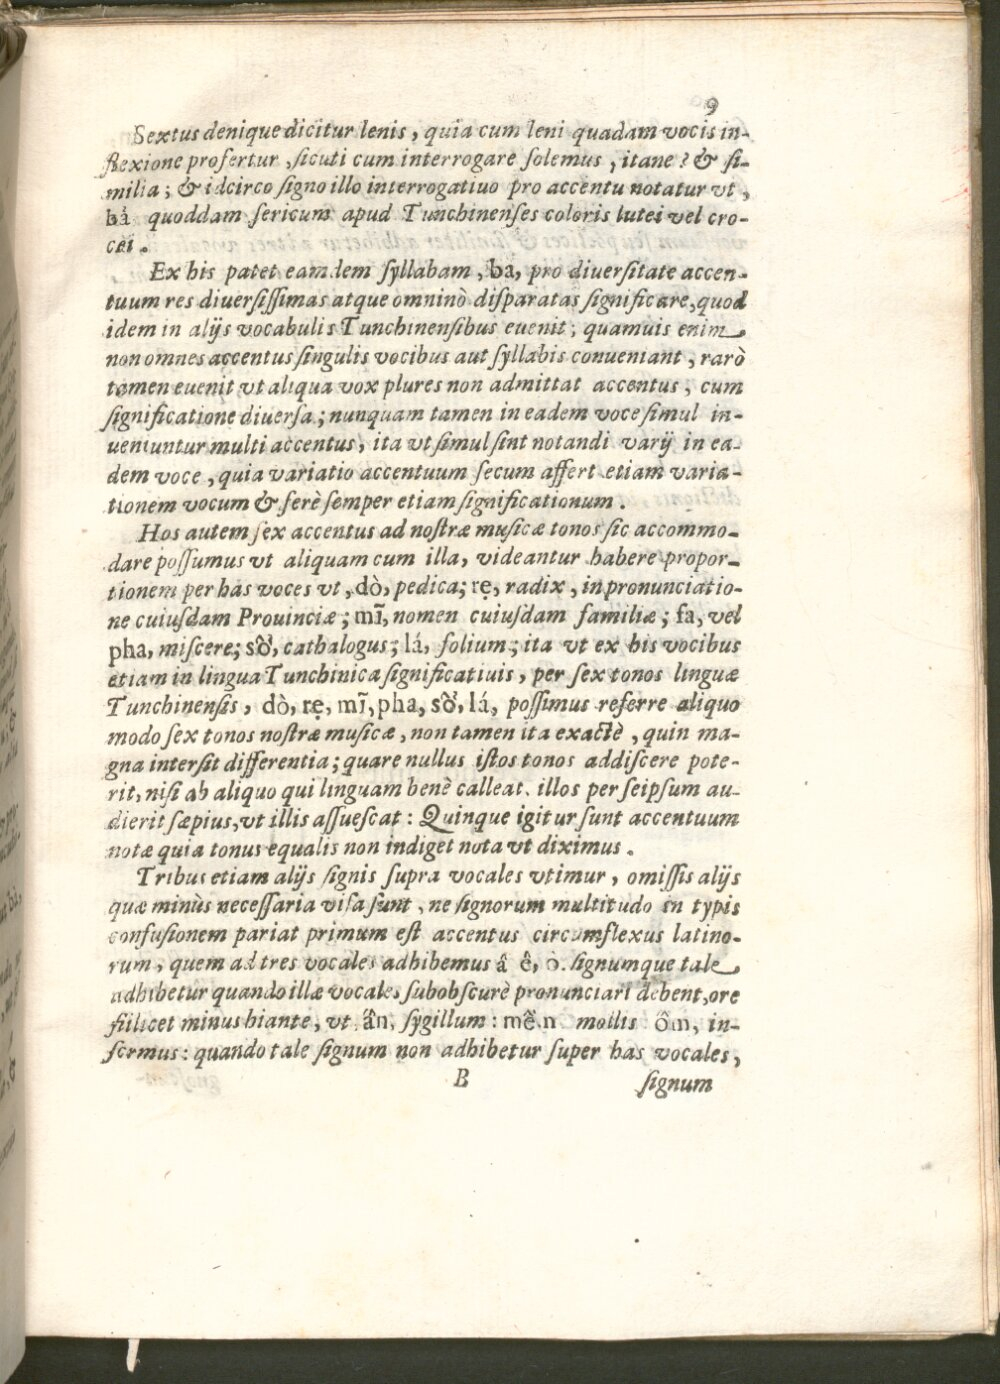 9
Sextus denique dicitur lenis, quia cum leni quadam vocis in-
flexione profertur, sicuti cum interrogare solemus, itane? & si-
milia; & idcirco signo illo interrogatiuo pro accentu notatur vt,
bả quoddam sericum apud Tunchinenses coloris lutei vel cro-
cei.
Ex his patet eamdem syllabam, ba, pro diuersitate accen-
tuum res diuersissimas atque omninò disparatas significare, quod
idem in alijs vocabulis Tunchinensibus euenit; quamuis enim
non omnes accentus singulis vocibus aut syllabis conueniant, rarò
tamen euenit vt aliqua vox plures non admittat accentus, cum
significatione diuersa; nunquam tamen in eadem voce simul in-
ueniuntur multi accentus, ita vt simul sint notandi varij in ea-
dem voce, quia variatio accentuum secum affert etiam varia-
tionem vocum & ferè semper etiam significationum.
Hos autem sex accentus ad nostræ musicæ tonos sic accommo-
dare possumus vt aliquam cum illa, videantur habere propor-
tionem per has voces vt, dò, pedica; rẹ, radix, in pronunciatio-
ne cuiusdam Prouinciæ; mĩ, nomen cuiusdam familiæ; fa, vel
pha, miscere; sổ, cathalogus; lá, folium; ita vt ex his vocibus
etiam in lingua Tunchinica significatiuis, per sex tonos linguæ
Tunchinensis, dò, rẹ, mĩ, pha, sổ, lá, possimus referre aliquo
modo sex tonos nostræ musicæ, non tamen ita exactè, quin ma-
gna intersit differentia; quare nullus istos tonos addiscere pote-
rit, nisi ab aliquo qui linguam benè calleat, illos per seipsum au-
dierit sæpius, vt illis assuescat: Quinque igitur sunt accentuum
notæ quia tonus equalis non indiget nota vt diximus.
Tribus etiam alijs signis supra vocales vtimur, omissis alijs
quæ minùs necessaria visa sunt, ne signorum multitudo in typis
confusionem pariat primum est accentus circumflexus latino-
rum, quem ad tres vocales adhibemus â ê, ô. signumque tale
adhibetur quando illæ vocales subobscurè pronunciari debent, ore
scilicet minus hiante, vt ấn, sygillum: mền mollis ôm, in-
firmus: quando tale signum non adhibetur super has vocales,
B
signum